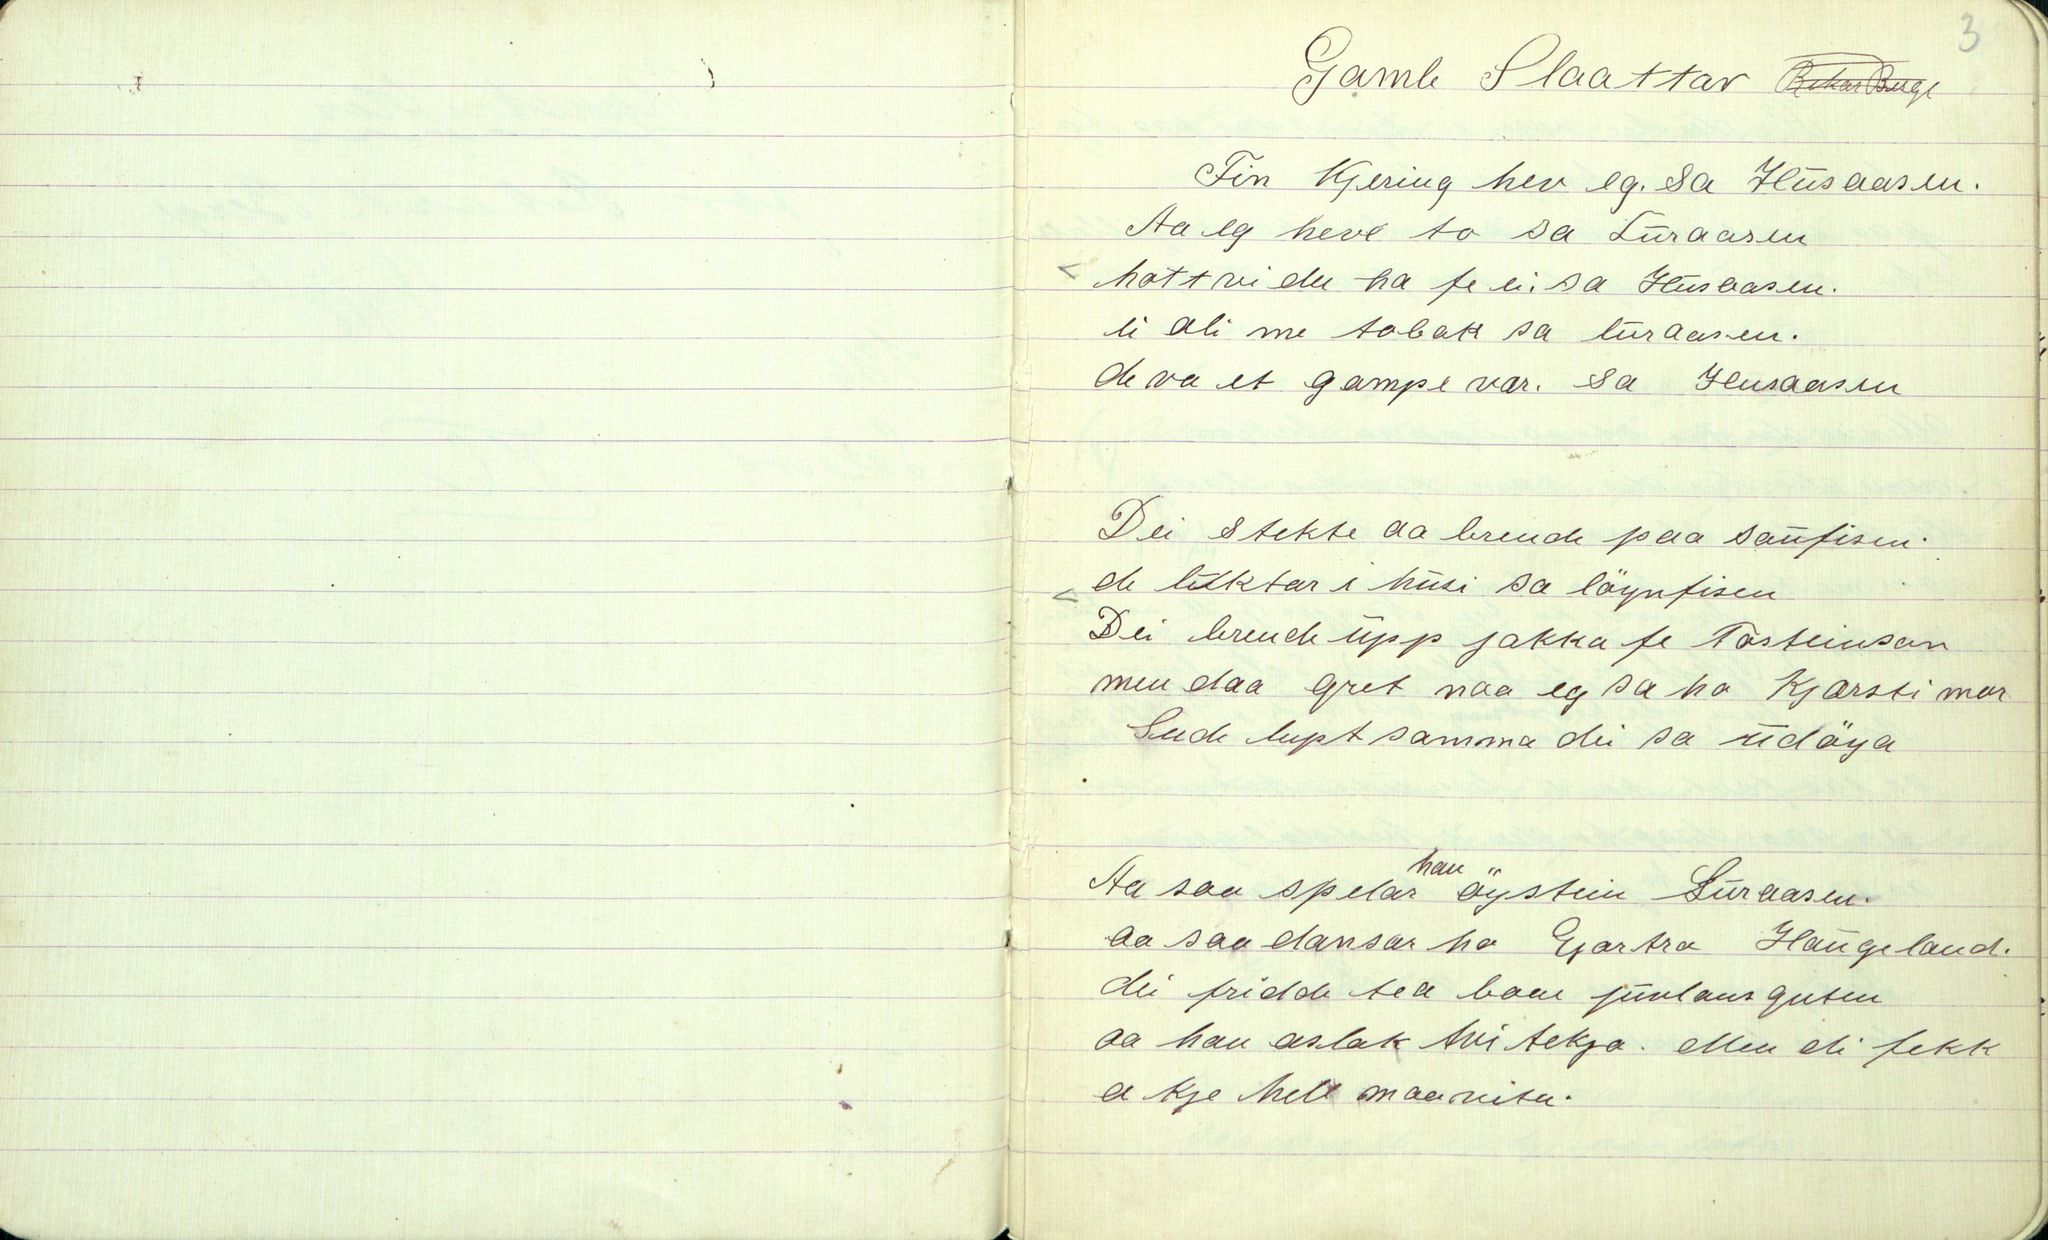 3
Gamle Slaattar Rikar Berge
Fin Kjering hev eg. sa Husaasen.
Aa eg heve to sa Luraasen
hott vi du ha fe ei. sa Husaasen.
ei ali me tobak sa luraasen.
de va et gampe var. sa Husaasen
Dei stekte aa brende paa saufisen.
de luktar i husi sa löynfisen
Dei brende upp jakka fe Tosteinson
men daa gret naa eg sa ho Kjersti mor
Sude lupt samma dei sa udöya
Aa saa spelar han öystein Luraasen.
aa saa dansar ho Gjartra Haugeland.
dei fridde tea baae juvlansguten
aa han aslak tvitekja. Men di fekk
a kje hell maavita.